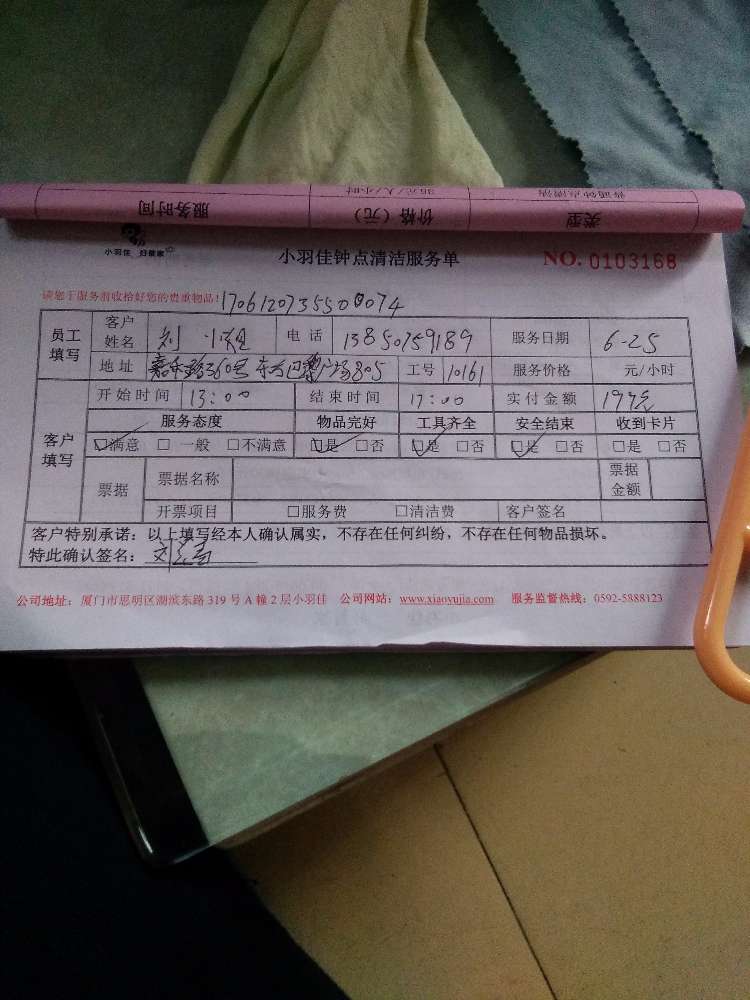 普通钟点清洁 35元/人/小时
类型 价格（元） 服务时间
小羽佳 好管家
小羽佳钟点清洁服务单 NO. 0103168
请您于服务前收拾好您的贵重物品! 1706120735500074
员工填写 客户姓名 刘小姐 电话 13850759189 服务日期 6-25
地址 嘉禾路360号 东方巴黎广场805 工号 10161 服务价格 元/小时
开始时间 13:00 结束时间 17:00 实付金额
客户填写 服务态度 物品完好 工具齐全 安全结束 收到卡片
☑满意 □一般 □不满意 ☑是 □否 ☑是 □否 ☑是 □否 □是 □否
票据 票据名称 票据金额
开票项目 □服务费 □清洁费 客户签名
客户特别承诺：以上填写经本人确认属实，不存在任何纠纷，不存在任何物品损坏。
特此确认签名：
公司地址：厦门市思明区湖滨东路319号A幢2层小羽佳 公司网站：www.xiaoyujia.com 服务监督热线：0592-5888123